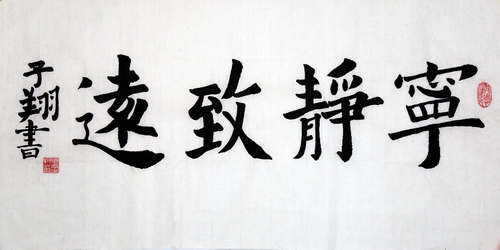 寧靜致遠
子翔書